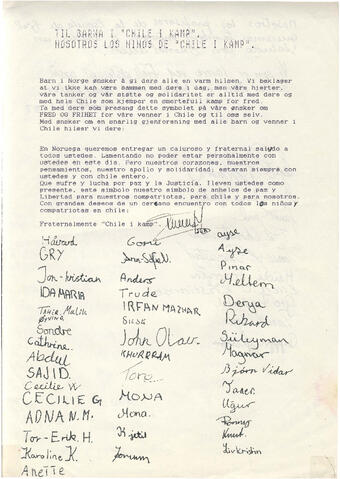 TIL BARNA I "CHILE I KAMP".
NOSOTROS LOS NINOS DE "CHILE I KAMP".
Barn i Norge ønsker å gi dere alle en varm hilsen. Vi beklager
at vi ikke kan være sammen med dere i dag, men våre hjerter,
våre tanker og vår støtte og solidaritet er alltid med dere og
med hele Chile som kjemper en smertefull kamp for fred.
Ta dere med som presang dette symbolet på våre ønsker om
FRED OG FRIHET for våre venner i Chile og til oss selv.
Med ønsker om en snarlig gjenforening med alle barn og venner i
Chile hilser vi dere:
En Noruega queremos entregar un caluroso y fraternal saludo a
todos ustedes. Lamentando no poder estar personalmente con
ustedes en este dia. Pero nuestros corazones, nuestros
pensamientos, nuestro apollo y solidaridad; estaran siempre con
ustedes y con chile entero.
Que sufre y lucha por paz y la Justicia. lleven ustedes como
presente, este simbolo nuestro simbolo de anhelos de paz y
Libertad para nuestros compatriotas, para chile y para nosotros.
Con grandes deseos de un cercano encuentro con todos los niños y
compatriotas en chile:
Fraternalmente "Chile i kamp".
Håvard
GRY
Jon-kristian
IDA MARIA
TAHIR MALIK
ØYVIND
Sondre
Cathrine.
Abdul
SAJID.
Cecilie W
CECILIE G
ADNA N. M.
Tor-Erik. H.
Karoline K.
Anette
Anders
Trude
IRFAN MAZHAR
SILJE
John Olav.
KHURRAM
Tore
MONA
Mona.
Kjetil
Jorunn
ayse
Ayse
Pinar
Meltem
Derya
Rikard
Süleyman
Magnar
Bjørn Vidar
Taner.
Uğur
Ronny
Knut.
Liv kristin